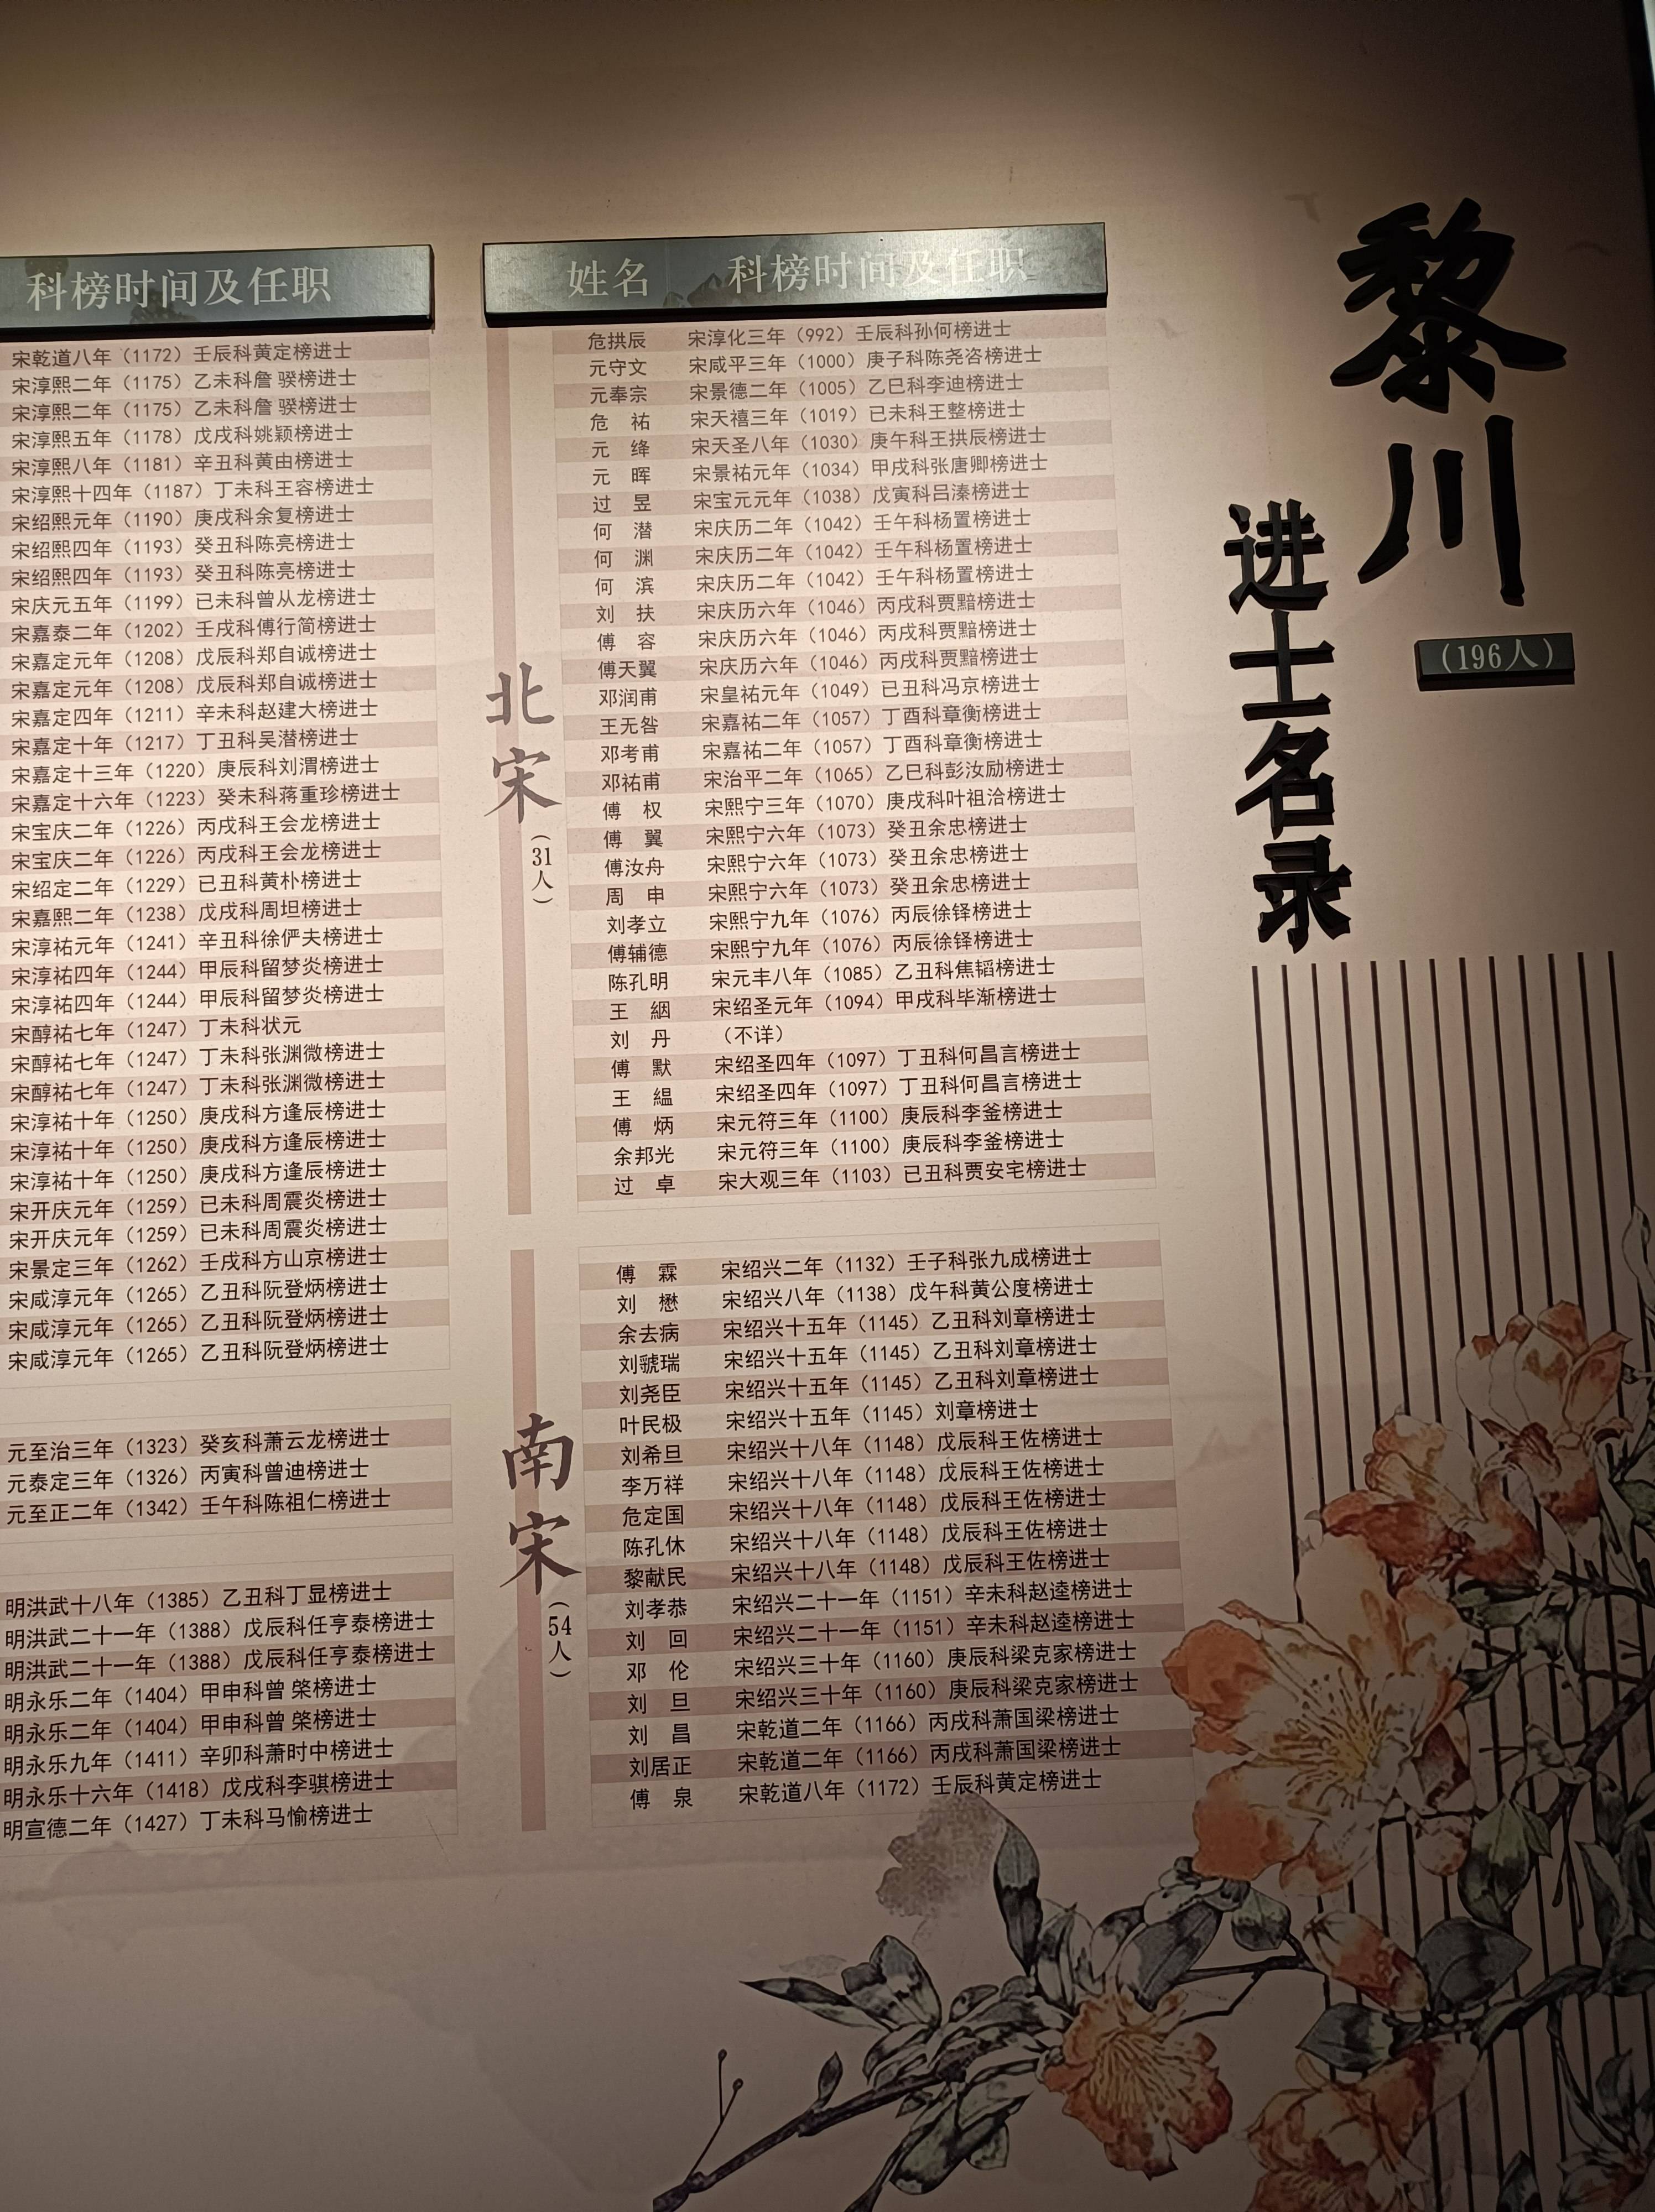 黎川
进士名录
（196人）
姓名 科榜时间及任职
北宋（31人）
危拱辰 宋淳化三年（992）壬辰科孙何榜进士
元守文 宋咸平三年（1000）庚子科陈尧咨榜进士
元奉宗 宋景德二年（1005）乙巳科李迪榜进士
危 祐 宋天禧三年（1019）已未科王整榜进士
元 绛 宋天圣八年（1030）庚午科王拱辰榜进士
元 晖 宋景祐元年（1034）甲戌科张唐卿榜进士
过 昱 宋宝元元年（1038）戊寅科吕溱榜进士
何 潜 宋庆历二年（1042）壬午科杨置榜进士
何 渊 宋庆历二年（1042）壬午科杨置榜进士
何 滨 宋庆历二年（1042）壬午科杨置榜进士
刘 扶 宋庆历六年（1046）丙戌科贾黯榜进士
傅 容 宋庆历六年（1046）丙戌科贾黯榜进士
傅天翼 宋庆历六年（1046）丙戌科贾黯榜进士
邓润甫 宋皇祐元年（1049）已丑科冯京榜进士
王无咎 宋嘉祐二年（1057）丁酉科章衡榜进士
邓考甫 宋嘉祐二年（1057）丁酉科章衡榜进士
邓祐甫 宋治平二年（1065）乙巳科彭汝励榜进士
傅 权 宋熙宁三年（1070）庚戌科叶祖洽榜进士
傅 翼 宋熙宁六年（1073）癸丑余忠榜进士
傅汝舟 宋熙宁六年（1073）癸丑余忠榜进士
周 申 宋熙宁六年（1073）癸丑余忠榜进士
刘孝立 宋熙宁九年（1076）丙辰徐铎榜进士
傅辅德 宋熙宁九年（1076）丙辰徐铎榜进士
陈孔明 宋元丰八年（1085）乙丑科焦韬榜进士
王 絪 宋绍圣元年（1094）甲戌科毕渐榜进士
刘 丹 （不详）
傅 默 宋绍圣四年（1097）丁丑科何昌言榜进士
王 緼 宋绍圣四年（1097）丁丑科何昌言榜进士
傅 炳 宋元符三年（1100）庚辰科李釜榜进士
余邦光 宋元符三年（1100）庚辰科李釜榜进士
过 卓 宋大观三年（1103）已丑科贾安宅榜进士
南宋（54人）
傅 霖 宋绍兴二年（1132）壬子科张九成榜进士
刘 懋 宋绍兴八年（1138）戊午科黄公度榜进士
余去病 宋绍兴十五年（1145）乙丑科刘章榜进士
刘虢瑞 宋绍兴十五年（1145）乙丑科刘章榜进士
刘尧臣 宋绍兴十五年（1145）乙丑科刘章榜进士
叶民极 宋绍兴十五年（1145）刘章榜进士
刘希旦 宋绍兴十八年（1148）戊辰科王佐榜进士
李万祥 宋绍兴十八年（1148）戊辰科王佐榜进士
危定国 宋绍兴十八年（1148）戊辰科王佐榜进士
陈孔休 宋绍兴十八年（1148）戊辰科王佐榜进士
黎献民 宋绍兴十八年（1148）戊辰科王佐榜进士
刘孝恭 宋绍兴二十一年（1151）辛未科赵逵榜进士
刘 回 宋绍兴二十一年（1151）辛未科赵逵榜进士
邓 伦 宋绍兴三十年（1160）庚辰科梁克家榜进士
刘 旦 宋绍兴三十年（1160）庚辰科梁克家榜进士
刘 昌 宋乾道二年（1166）丙戌科萧国梁榜进士
刘居正 宋乾道二年（1166）丙戌科萧国梁榜进士
傅 泉 宋乾道八年（1172）壬辰科黄定榜进士
科榜时间及任职
宋乾道八年（1172）壬辰科黄定榜进士
宋淳熙二年（1175）乙未科詹 骙榜进士
宋淳熙二年（1175）乙未科詹 骙榜进士
宋淳熙五年（1178）戊戌科姚颖榜进士
宋淳熙八年（1181）辛丑科黄由榜进士
宋淳熙十四年（1187）丁未科王容榜进士
宋绍熙元年（1190）庚戌科余复榜进士
宋绍熙四年（1193）癸丑科陈亮榜进士
宋绍熙四年（1193）癸丑科陈亮榜进士
宋庆元五年（1199）已未科曾从龙榜进士
宋嘉泰二年（1202）壬戌科傅行简榜进士
宋嘉定元年（1208）戊辰科郑自诚榜进士
宋嘉定元年（1208）戊辰科郑自诚榜进士
宋嘉定四年（1211）辛未科赵建大榜进士
宋嘉定十年（1217）丁丑科吴潜榜进士
宋嘉定十三年（1220）庚辰科刘渭榜进士
宋嘉定十六年（1223）癸未科蒋重珍榜进士
宋宝庆二年（1226）丙戌科王会龙榜进士
宋宝庆二年（1226）丙戌科王会龙榜进士
宋绍定二年（1229）已丑科黄朴榜进士
宋嘉熙二年（1238）戊戌科周坦榜进士
宋淳祐元年（1241）辛丑科徐俨夫榜进士
宋淳祐四年（1244）甲辰科留梦炎榜进士
宋淳祐四年（1244）甲辰科留梦炎榜进士
宋醇祐七年（1247）丁未科状元
宋醇祐七年（1247）丁未科张渊微榜进士
宋醇祐七年（1247）丁未科张渊微榜进士
宋淳祐十年（1250）庚戌科方逢辰榜进士
宋淳祐十年（1250）庚戌科方逢辰榜进士
宋淳祐十年（1250）庚戌科方逢辰榜进士
宋开庆元年（1259）已未科周震炎榜进士
宋开庆元年（1259）已未科周震炎榜进士
宋景定三年（1262）壬戌科方山京榜进士
宋咸淳元年（1265）乙丑科阮登炳榜进士
宋咸淳元年（1265）乙丑科阮登炳榜进士
宋咸淳元年（1265）乙丑科阮登炳榜进士
元至治三年（1323）癸亥科萧云龙榜进士
元泰定三年（1326）丙寅科曾迪榜进士
元至正二年（1342）壬午科陈祖仁榜进士
明洪武十八年（1385）乙丑科丁显榜进士
明洪武二十一年（1388）戊辰科任亨泰榜进士
明洪武二十一年（1388）戊辰科任亨泰榜进士
明永乐二年（1404）甲申科曾 棨榜进士
明永乐二年（1404）甲申科曾 棨榜进士
明永乐九年（1411）辛卯科萧时中榜进士
明永乐十六年（1418）戊戌科李骐榜进士
明宣德二年（1427）丁未科马愉榜进士